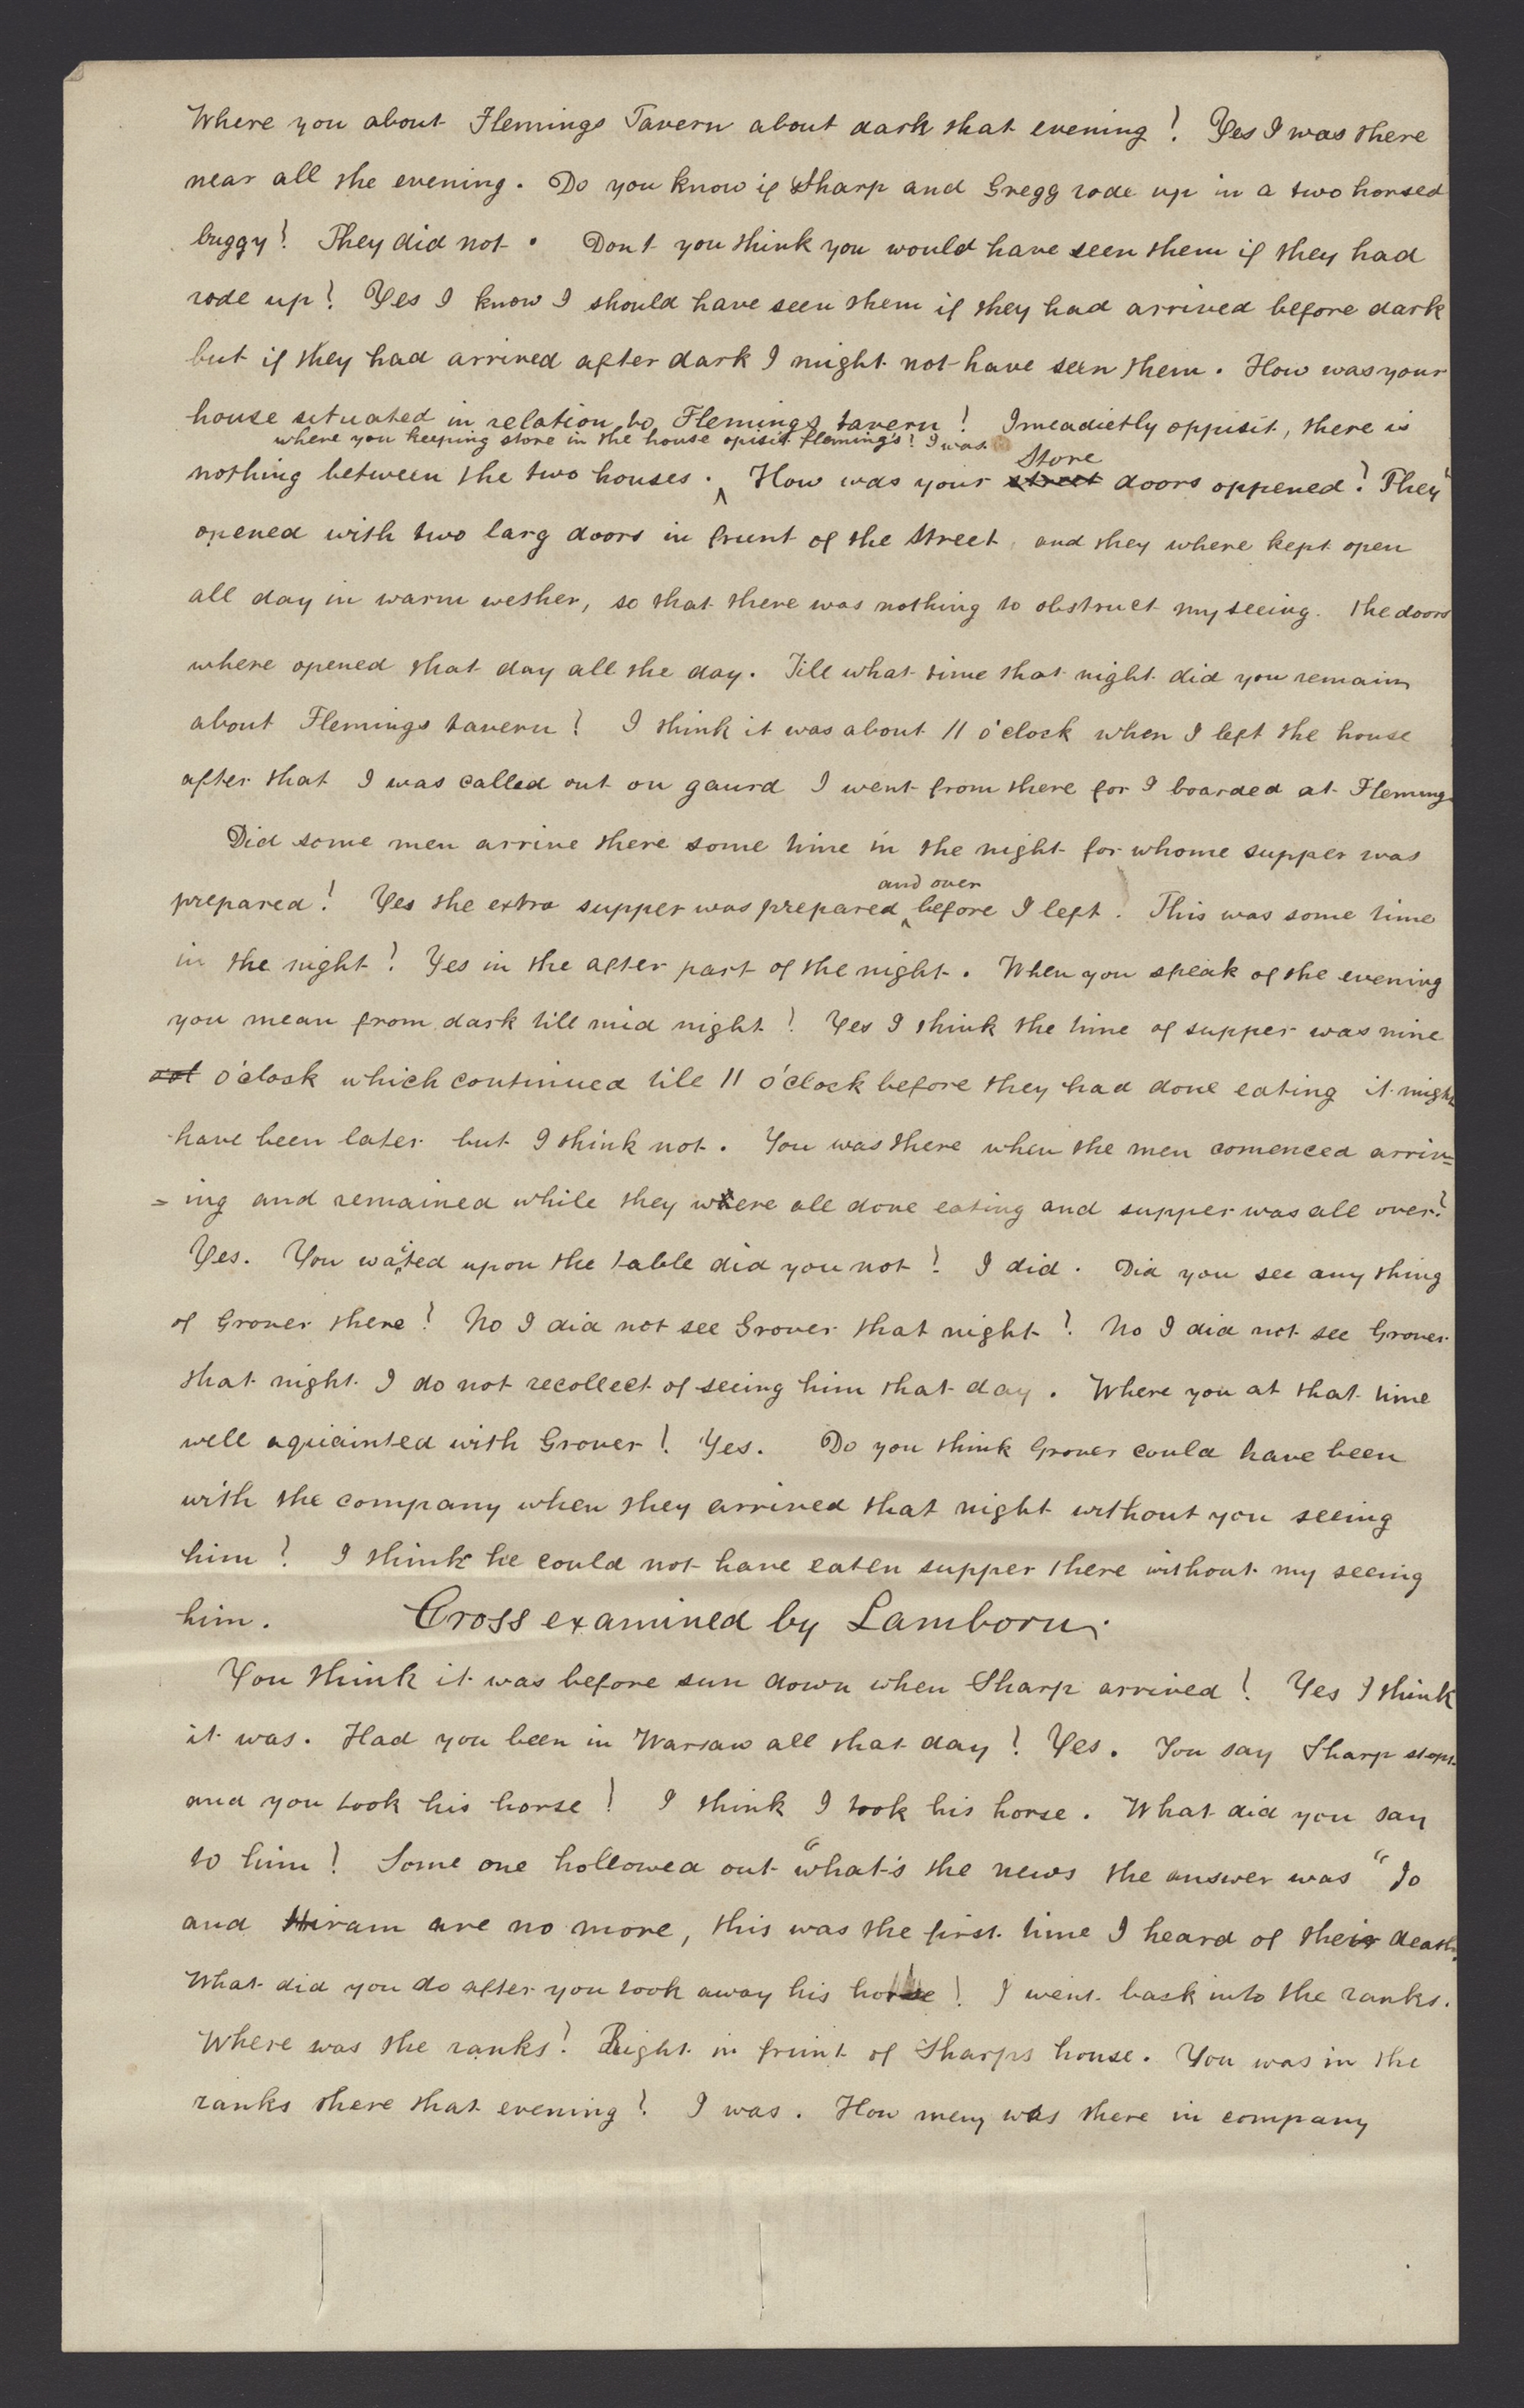 Where you about Flemings Tavern about dark that evening? Yes I was there
near all the evening. Do you know if Sharp and Gregg rode up in a two horsed
buggy? They did not. Dont you think you would have seen them if they had
rode up? Yes I know I should have seen them if they had arrived before dark
but if they had arrived after dark I might not have seen them. How was your
house setuated in relation to Flemings tavern? Imeadietly oppisit, there is
where you keeping store in the house opisit flemings? I was
Store
nothing between the two houses. ^ How was your street doors oppened? They
opened with two larg doors in frunt of the street and they where kept open
all day in warm wether, so that there was nothing to obstruct my seeing. The doors
where opened that day all the day. Till what time that night did you remain
about Flemings tavern? I think it was about 11 o'clock when I left the house
after that I was called out on gaurd I went from there for I boarded at Flemings
Did some men arrive there some time in the night for whome supper was
and over
prepared? Yes the extra supper was prepared ^ before I left. This was some time
in the night? Yes in the after part of the night. When you speak of the evening
you mean from dark till mid night? Yes I think the time of supper was nine
o'clock which continued till 11 o'clock before they had done eating it might
have been later but I think not. You was there when the men comenced arriv=
=ing and remained while they where all done eating and supper was all over?
Yes. You waited upon the table did you not? I did. Did you see any thing
of Grover there? No I did not see Grover that night? No I did not see Grover
that night I do not recollect of seeing him that day. Where you at that time
well aquiainted with Grover? Yes. Do you think Grover could have been
with the company when they arrived that night without you seeing
him? I think he could not have eaten supper there without my seeing
him. Cross examined by Lamborn.
You think it was before sun down when Sharp arrived? Yes I think
it was. Had you been in Warsaw all that day? Yes. You say Sharp stopt
and you took his horse? I think I took his horse. What did you say
to him? Some one hollowed out "what's the news the answer was "Jo
and Hiram are no more, this was the first time I heard of their death.
What did you do after you took away his horse? I went back into the ranks.
Where was the ranks? Right in frunt of Sharps house. You was in the
ranks there that evening? I was. How meny was there in company